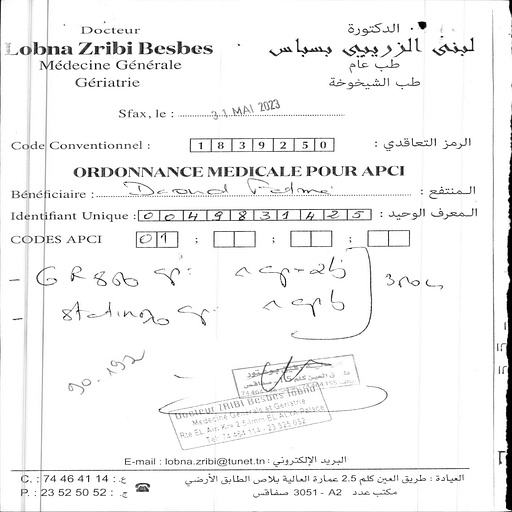 Docteur
Lobna Zribi Besbes
Médecine Générale
Gériatrie
الدكتورة
لبنى الزريبي بسباس
طب عام
طب الشيخوخة
Sfax, le : 31 MAI 2023
Code Conventionnel : 1 8 3 9 2 5 0 الرمز التعاقدي :
ORDONNANCE MEDICALE POUR APCI
Bénéficiaire : Daoud المنتفع :
Identifiant Unique : 0 0 4 9 8 3 1 4 2 5 المعرف الوحيد :
CODES APCI 01 : : :
- GR 850 cp: 1 cp x 2/j
3 mois
- 1 cp/j
90.192
Docteur ZRIBI Besbes lobna
Médecine Générale et Gériatrie
Rte EL Ain Km 2.5 Imm EL ALYA Palace
Tél: 74 464 114 - 23 525 052
E-mail : lobna.zribi@tunet.tn : البريد الإلكتروني
C. : 74 46 41 14 : ع.
P. : 23 52 50 52 : ج.
العيادة : طريق العين كلم 2.5 عمارة العالية بلاص الطابق الأرضي
مكتب عدد A2 - 3051 صفاقس